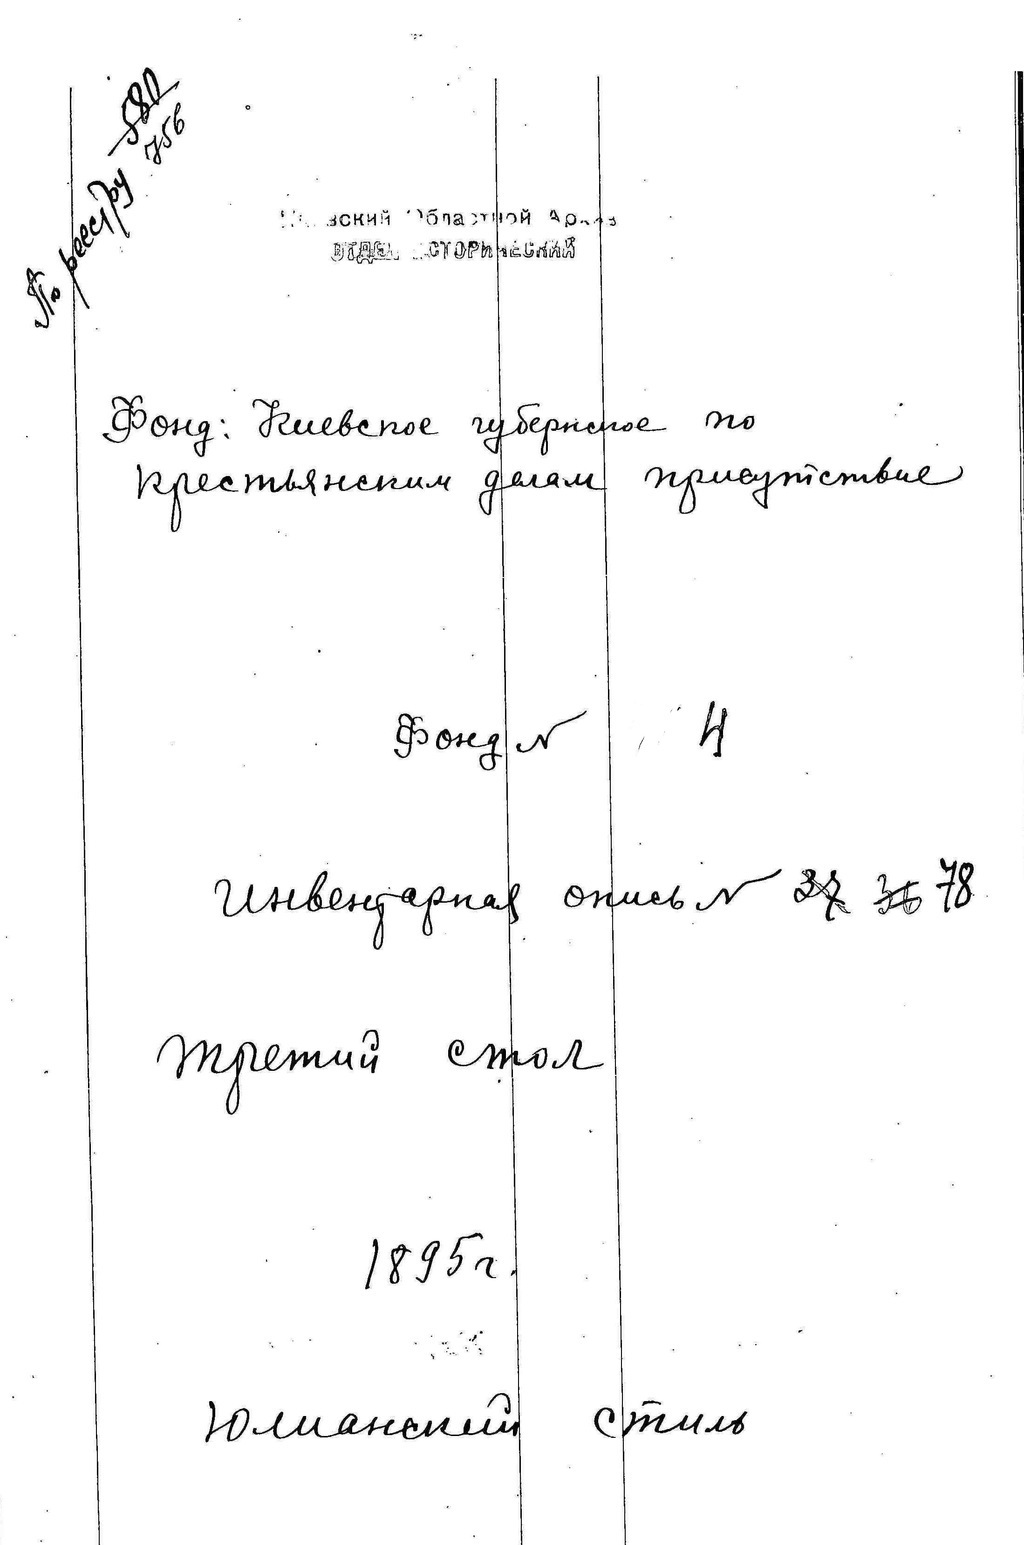 По реестру 580
756
Киевский Областной Архив
ОТДЕЛ ИСТОРИЧЕСКИЙ
Фонд: Киевское губернское по
крестьянским делам присутствие
Фонд № 4
Инвентарная опись № 37 36 78
Третий стол
1895 г.
Юлианский стиль